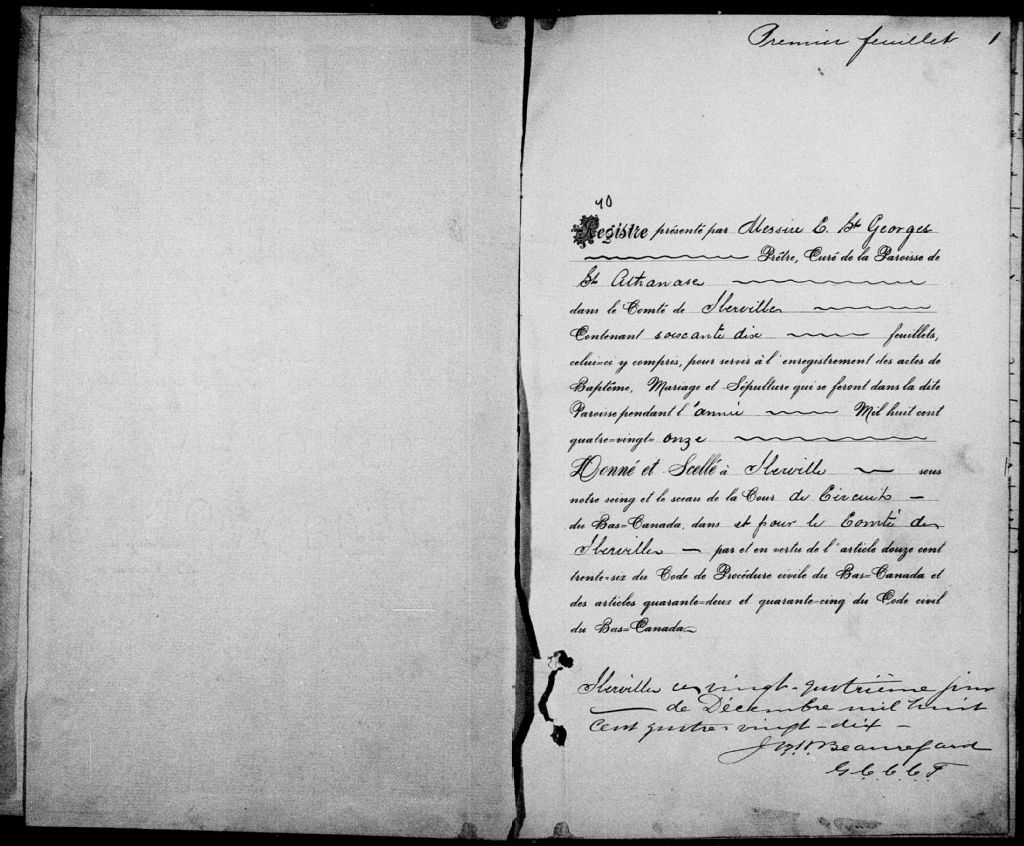 Premier feuillet 1
70
Registre présenté par Messire E. St Georges
Prêtre, Curé de la Paroisse de
St Athanase
dans le Comté de Iberville
Contenant soixante dix feuillets,
celui=ci y compris, pour servir à l'enregistrement des actes de
Baptême, Mariage et Sépulture qui se feront dans la dite
Paroisse pendant l'année Mil huit cent
quatre=vingt= onze
Donné et Scellé à Iberville sous
notre seing et le sceau de la Cour de Circuit
du Bas=Canada, dans et pour le Comté de
Iberville par et en vertu de l'article douze cent
trente=six du Code de Procédure civile du Bas=Canada et
des articles quarante=deux et quarante=cinq du Code civil
du Bas=Canada
Iberville ce vingt-quatrième jour
de Décembre mil huit
cent quatre vingt-dix
Beauregard
G.C.C.C.